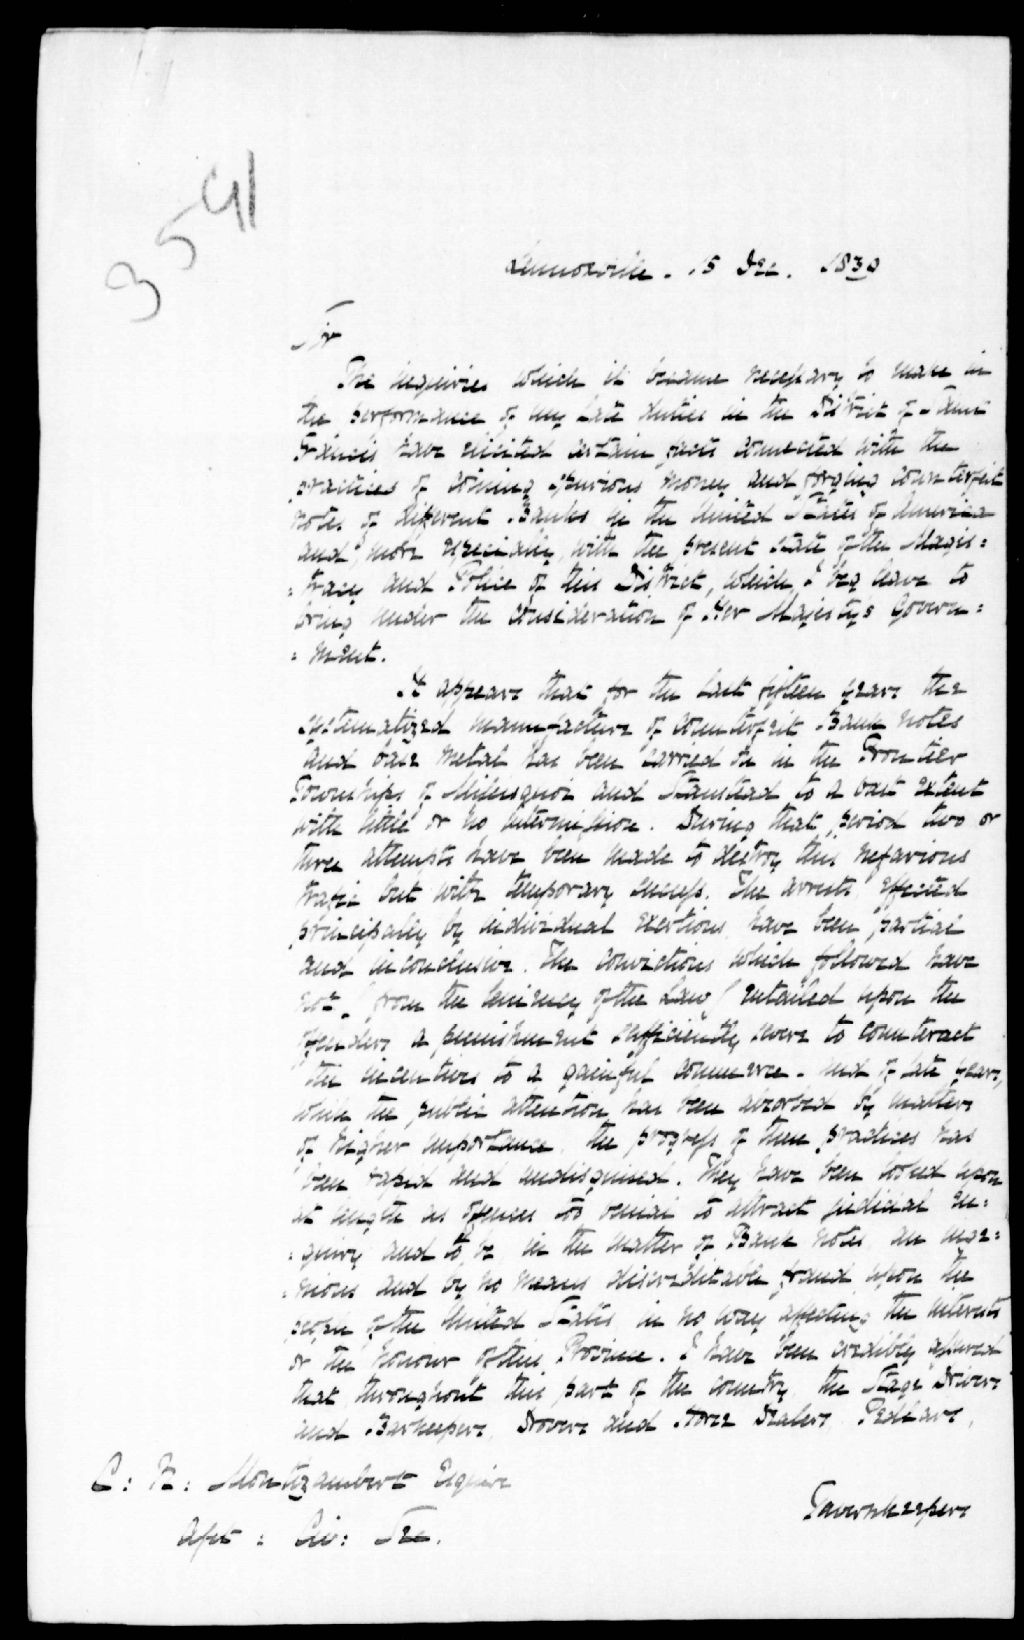 3541
Lennoxville . 15 Dec . 1839
Sir
The inquiries which it became necessary to make in
the performance of my late duties in the District of Saint
Francis have elicited certain facts connected with the
practices of coining spurious money and forging counterfeit
notes of different Banks in the United States of America
and, more especially, with the present state of the Magis=
=tracy and Police of this District, which I beg leave to
bring under the consideration of Her Majesty's Govern=
=ment.
It appears that for the last fifteen years the
systematized manufacture of counterfeit Bank notes
and base metal has been carried on in the Frontier
Townships of Missisquoi and Stanstead to a vast extent
with little or no intermission. During that period two or
three attempts have been made to destroy this nefarious
traffic but with temporary success. The arrests effected
principally by individual exertions have been partial
and inconclusive. The convictions which followed have
not (from the leniency of the Law) entailed upon the
offenders a punishment sufficiently severe to counteract
the incentives to a gainful commerce - and of late years,
while the public attention has been absorbed by matters
of higher importance, the progress of these practices has
been rapid and undisguised. They have been looked upon
at length as offences too venial to attract judicial en=
=quiry and to be in the matter of Bank notes an inge=
=nious and by no means discreditable fraud upon the
people of the United States, in no way affecting the interests
or the honour of this Province. I have been credibly assured
that throughout this part of the country, the Stage Drivers
and Barkeepers, Drovers and Horse Dealers, Pedlars,
Tavernkeepers
C: Z: Montizambert Esquire
Asst : Civ: Sec.